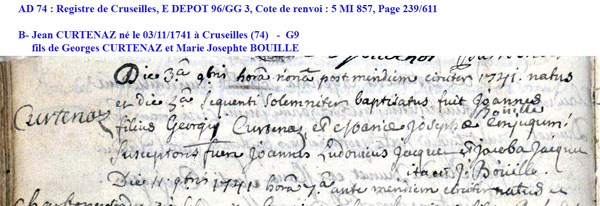 AD 74 : Registre de Cruseilles, E DEPOT 96/GG 3, Cote de renvoi : 5 MI 857, Page 239/611
B- Jean CURTENAZ né le 03/11/1741 à Cruseilles (74) - G9
fils de Georges CURTENAZ et Marie Josephte BOUILLE
Die 3ª 9bris horâ nonâ post meridiem 1741. natus
et die 3ª sequenti solemniter baptisatus fuit Joannes
Curtenaz
filius Georgii Curtenaz, et Josephæ Boüille Conjugum
susceptores fuere Joannes Ludovicus Jacque et Jacoba Jacque
ita est J. Boüille.
Die 9bris 1741 horâ 7ª ante meridiem natus